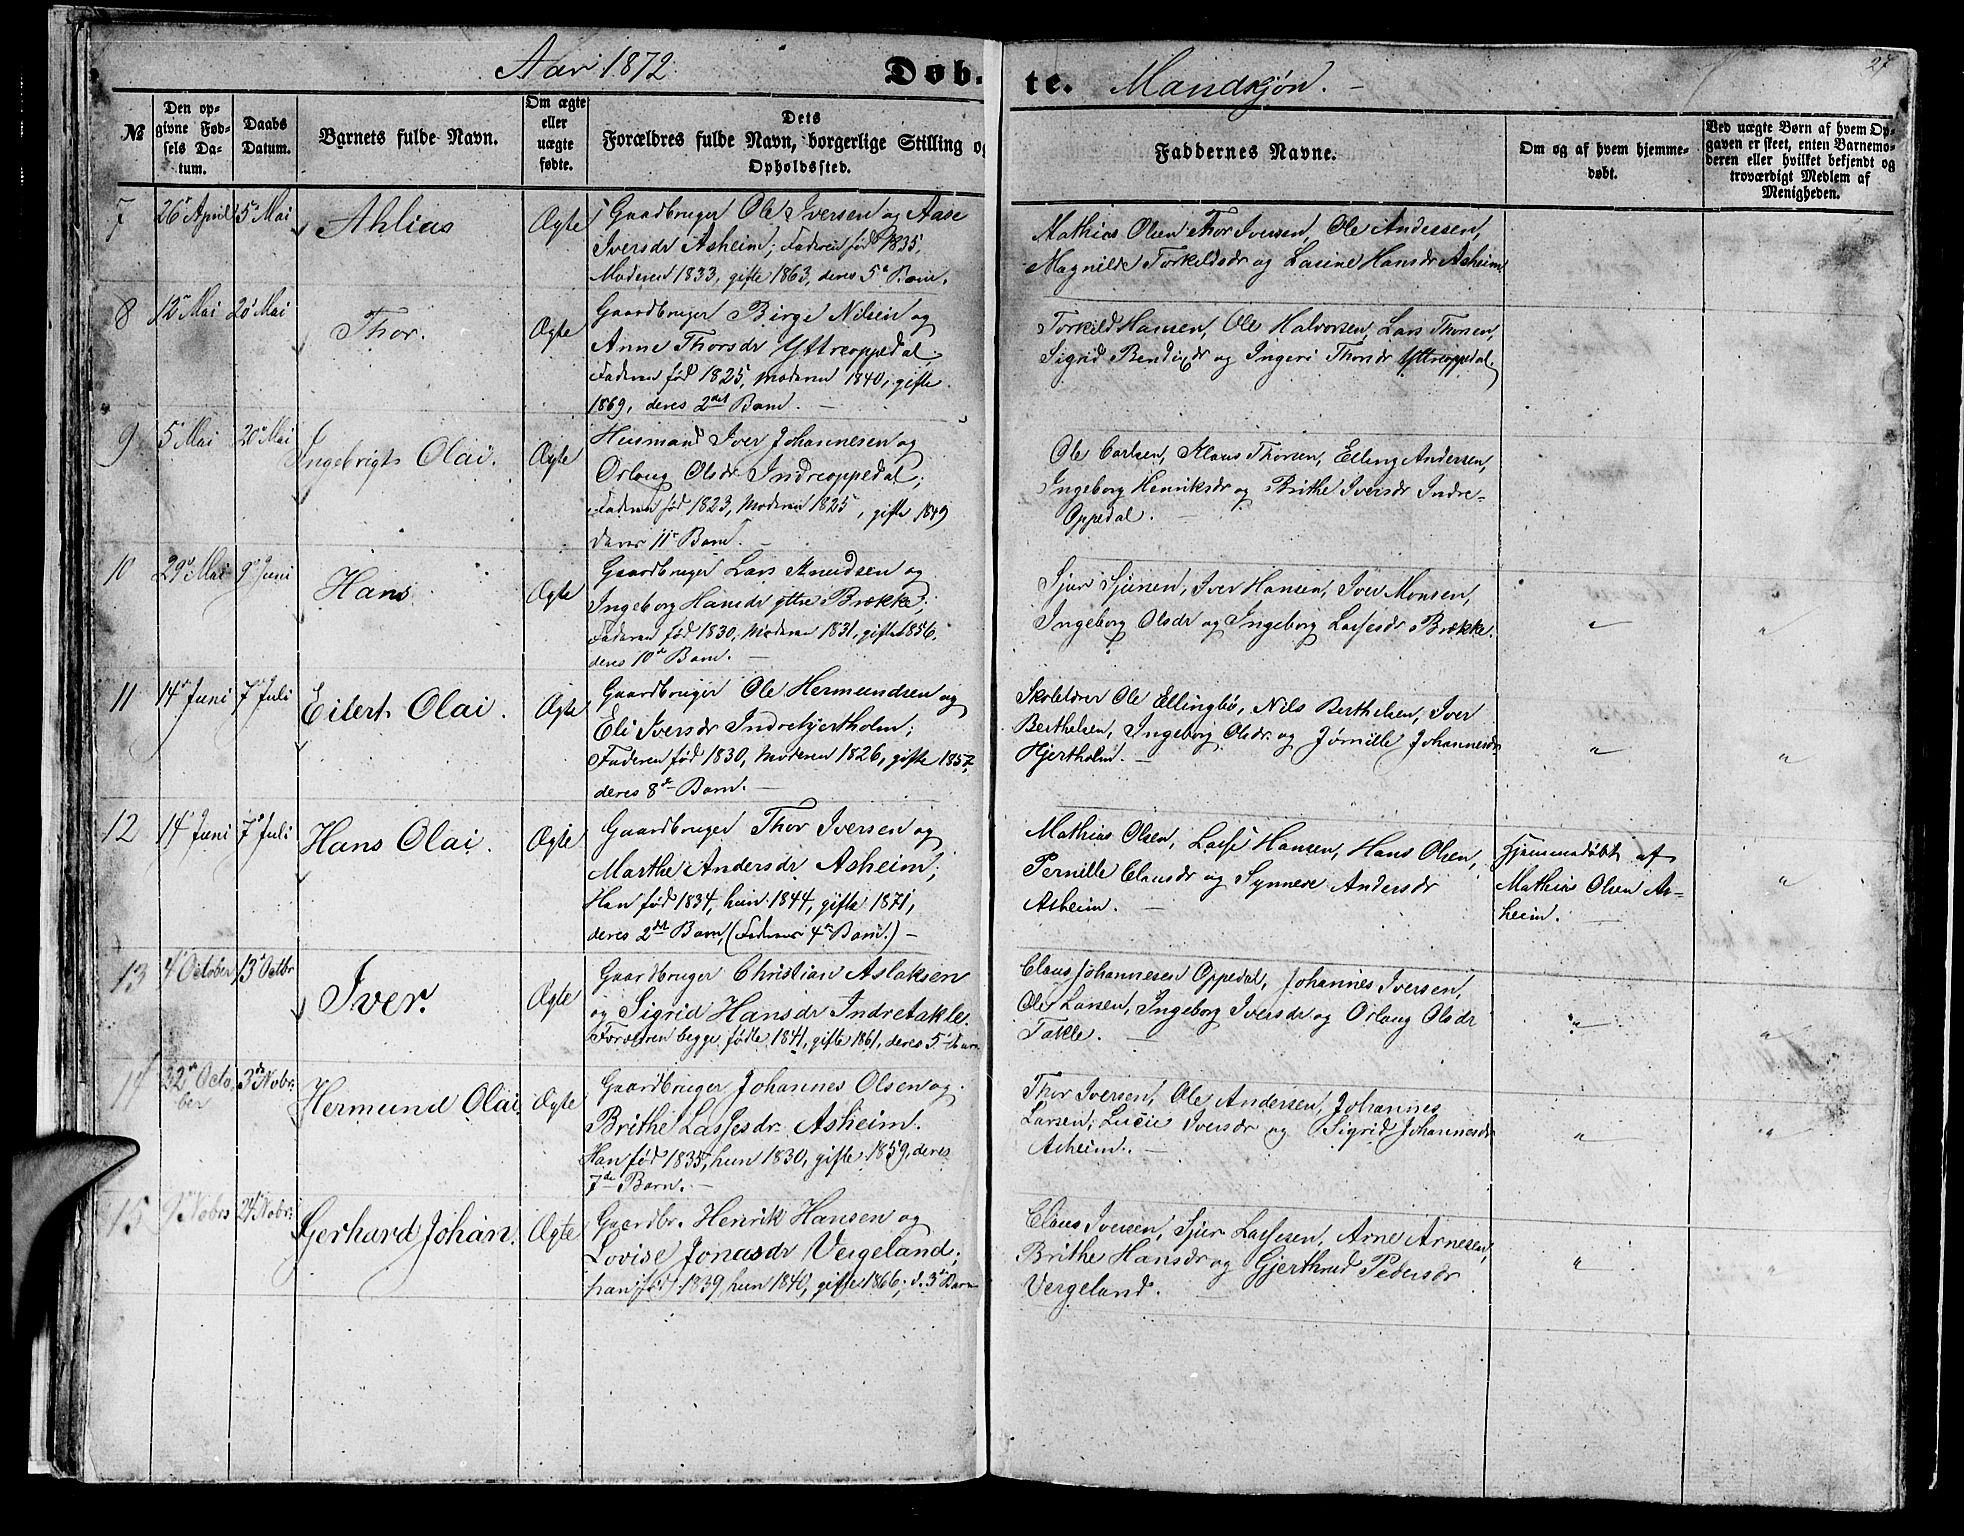 Aar 1872.
Døb-
te. Mandkjøn. –
27
№
Den op-
givne Fød-
sels Da-
tum.
Daabs
Datum.
Barnets fulde Navn.
Om ægte
eller
uægte
fødte.
Dets
Forældres fulde Navn, borgerlige Stilling og
Opholdssted.
Faddernes Navne.
Om og af hvem hjemme-
døbt.
Ved uægte Børn af hvem Op-
gaven er skeet, enten Barnemo-
deren eller hvilket bekjendt og
troværdigt Medlem af
Menigheden.
7 26de April 5te Mai Ahlias Ægte
Gaardbruger Ole Iversen og Aase
Iversdr Asheim; Faderen født 1835,
Moderen 1833, gifte 1863, deres 5te Barn.
Mathias Olsen Thor Iversen, Ole Andersen,
Magnilde Torkildsdr og Lasine Hansdr Asheim
8 12te Mai 20 Mai Thor. Ægte
Gaardbruger Birge Nilsen og
Anne Thorsdr Yttreoppedal,
Faderen fød 1825, Moderen 1840, gifte
1869, deres 2det Barn. –
Torkild Hansen, Ole Halvorsen, Lars Thorsen,
Sigrid Bendixdr og Ingeri Thorsdr Yttreoppedal
9 5te Mai 20de Mai Ingebrigt Olai. Ægte
Husmand Iver Johannesen og
Orlaug Olsdr Indreoppedal;
Faderen fød 1823, Moderen 1825, gifte 1849
deres 11te Barn. –
Ole Carlsen, Klaus Thorsen, Elling Andersen,
Ingeborg Henriksdr og Brithe Iversdr Indre-
Oppedal. –
10 29de Mai 9de Juni Hans Ægte
Gaardbruger Lars Knudsen og
Ingeborg Hansdr yttre Brække;
Faderen fød 1830, Moderen 1831, gifte 1856,
deres 10de Barn. –
Sjur Sjursen, Iver Hansen, Iver Monsen,
Ingeborg Olsdr og Ingeborg Lassesdr Brække.
„ „
11 14de Juni 7de Juli Eilert Olai. Ægte
Gaardbruger Ole Hermundsen og
Eli Iversdr Indrehjertholm;
Faderen fød 1830, Moderen 1826, gifte 1857,
deres 8de Barn. –
Skolelærer Ole Ellingbø, Nils Berthelsen, Iver
Berthelsen, Ingeborg Olsdr og Jørnille Johannesdr
Hjertholm. –
„ „
12 14de Juni 7de Juli Hans Olai. Ægte
Gaardbruger Thor Iversen og
Marthe Andersdr Asheim;
Han fød 1834, hun 1844, gifte 1871,
deres 2det Barn, (Faderens 4de Barn.) –
Mathias Olsen, Lasse Hansen, Hans Olsen,
Pernille Clausdr og Synneve Andersdr
Asheim. –
Hjemmedøbt af
Mathias Olsen As-
heim. –
„
13 4de October 13de Octbr Iver. Ægte
Gaardbruger Christian Aslaksen
og Sigrid Hansdr Indretakle.
Forældren begge fødte 1841, gifte 1861, deres 5te Barn
Claus Johannesen Oppedal, Johannes Iversen,
Ole Larsen, Ingeborg Iversdr og Orlaug Olsdr
Takle. –
„ „
14 Octo- 3de Nobr.
ber
Hermund Olai Ægte
Gaardbruger Johannes Olsen og
Brithe Lassesdr Asheim.
Han fød 1835, hun 1830, gifte 1859, deres
7de Barn. –
Thor Iversen, Ole Andersen, Johannes
Larsen, Lucie Iversdr og Sigrid Johannesdr
Asheim. –
„ „
15 Nobrs 24de Nobr: Gerhard Johan. Ægte
Gaardbr. Henrik Hansen og
Lovise Jonasdr Vergeland;
han fød 1839, hun 1840, gifte 1866, d. 3de Barn
Claus Iversen, Sjur Lassesen, Arne Arnesen,
Brithe Hansdr og Gjerthrud Pedersdr
Vergeland.
„ „